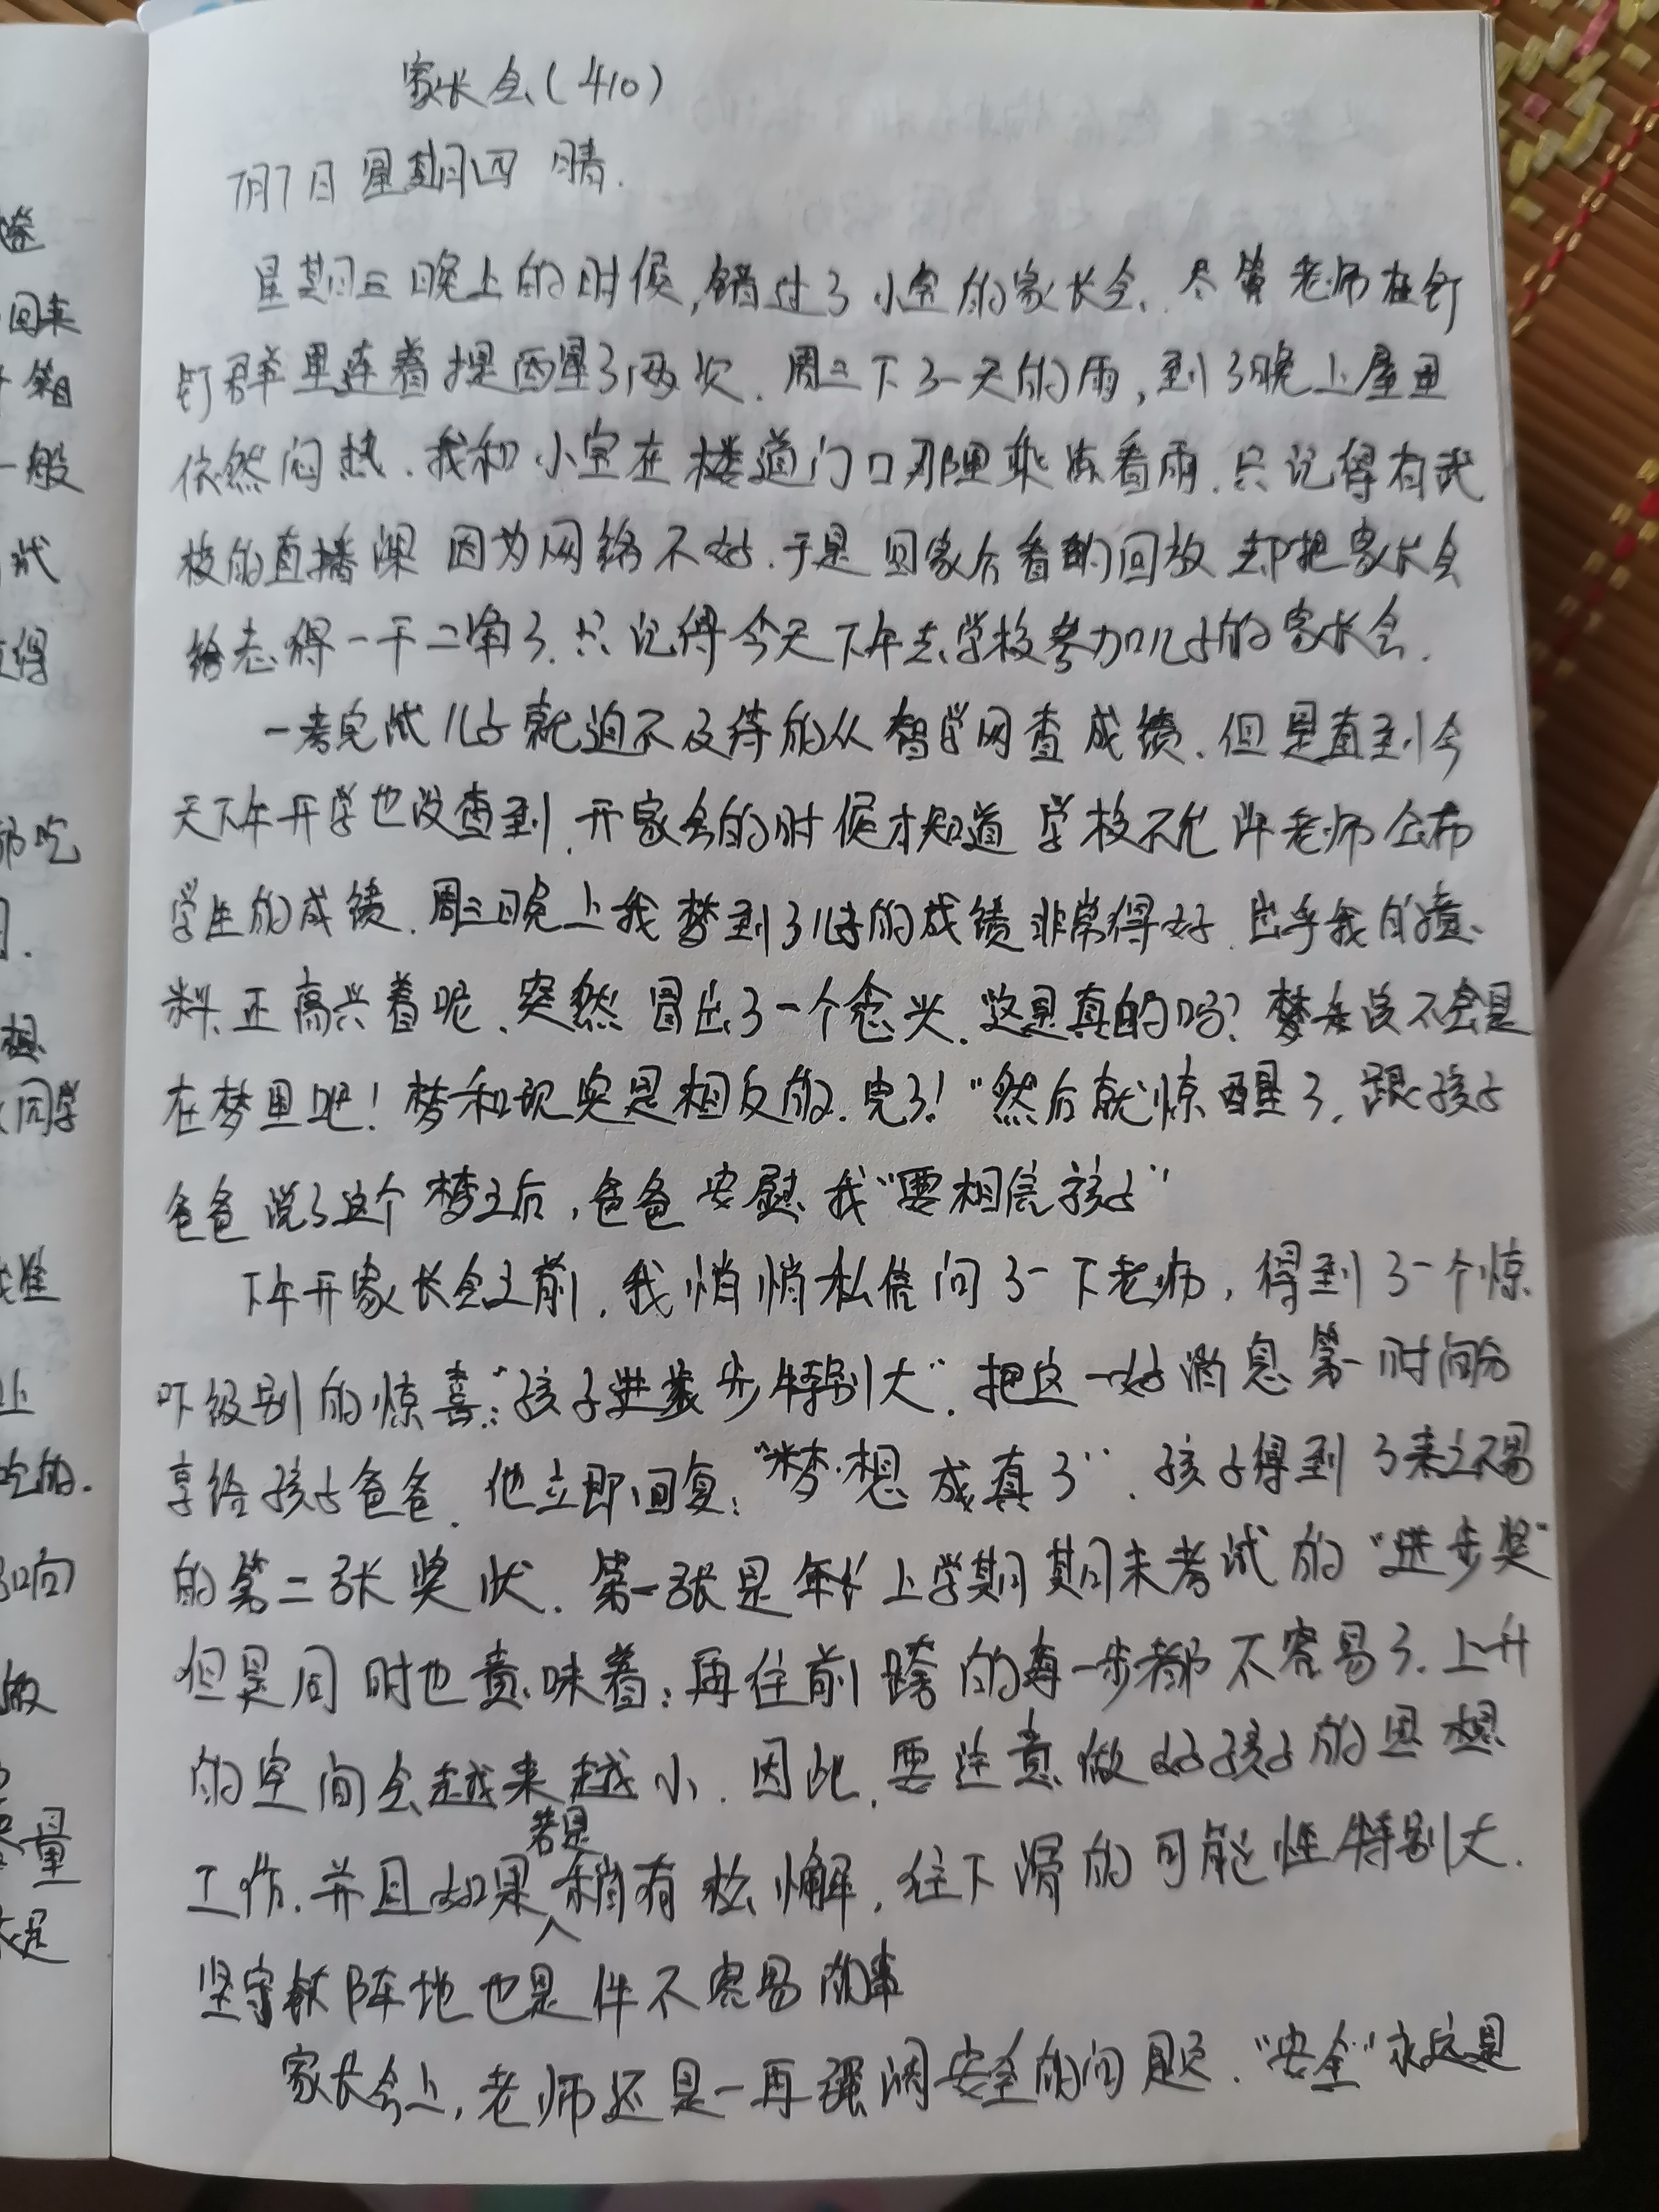 家长会(410)
7月7日 星期四 晴.
星期三晚上的时候,错过了小宝的家长会.尽管老师在钉
钉群里连着提醒了两次.周三下了一天的雨,到了晚上屋里
依然闷热.我和小宝在楼道门口那里乘凉看雨.只记得有武
校的直播课 因为网络不好.于是回家后看的回放 却把家长会
给忘得一干二净了.只记得今天下午去学校参加儿子的家长会.
一考完试儿子就迫不及待的从智学网查成绩.但是直到今
天下午开学也没查到.开家会的时候才知道 学校不允许老师公布
学生的成绩.周三晚上我梦到了儿子的成绩非常得好.出乎我的意
料.正高兴着呢.突然冒出了一个念头.这是真的吗?梦 该不会是
在梦里吧!梦和现实是相反的.完了!"然后就惊醒了.跟孩子
爸爸说了这个梦之后,爸爸安慰我"要相信孩子"
下午开家长会之前,我悄悄私信问了一下老师,得到了一个惊
吓级别的惊喜:"孩子进步特别大".把这一好消息第一时间分
享给孩子爸爸.他立即回复:"梦想成真了".孩子得到了来之不易
的第二张奖状.第一张是年 上学期期末考试的"进步奖"
但是同时也意味着:再往前跨的每一步都不容易了.上升
的空间会越来越小.因此,要注意做好孩子的思想
工作.并且如果若是稍有松懈,往下滑的可能性特别大.
坚守 阵地也是件不容易的事
家长会上,老师还是一再强调安全的问题."安全"永远是
回来
箱
一般
试
得
那吃
想
同学
准
吃的.
响
量